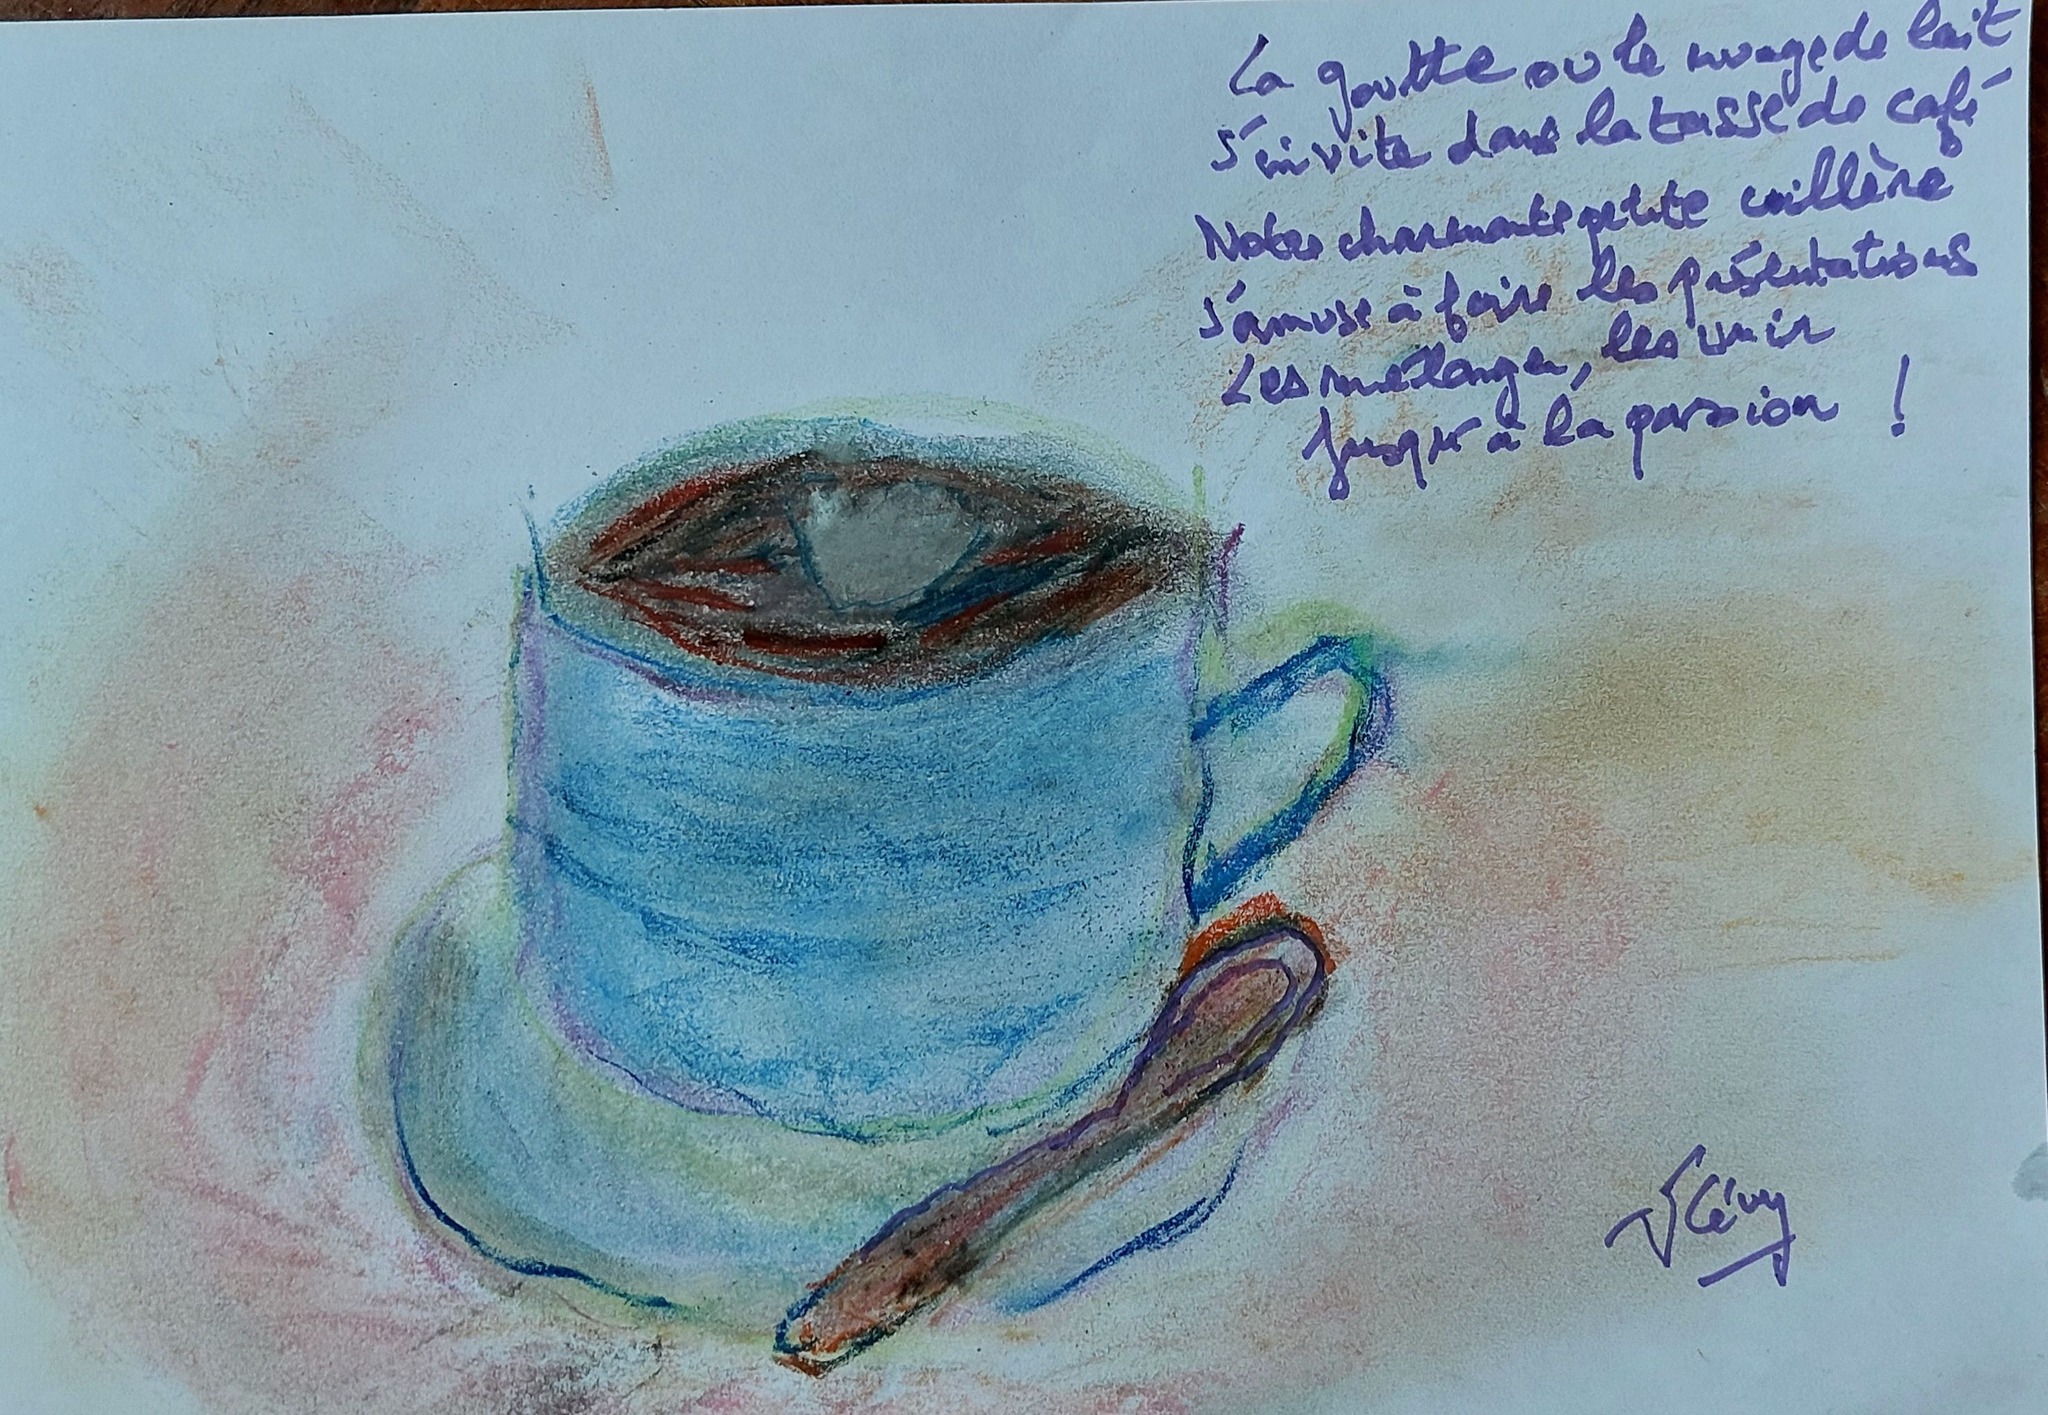 La goutte ou le nuage de lait
s'invite dans la tasse de café
Notre charmante petite cuillère
s'amuse à faire les présentations
Les mélanger, les unir
Jusqu'à la passion !
Lévy